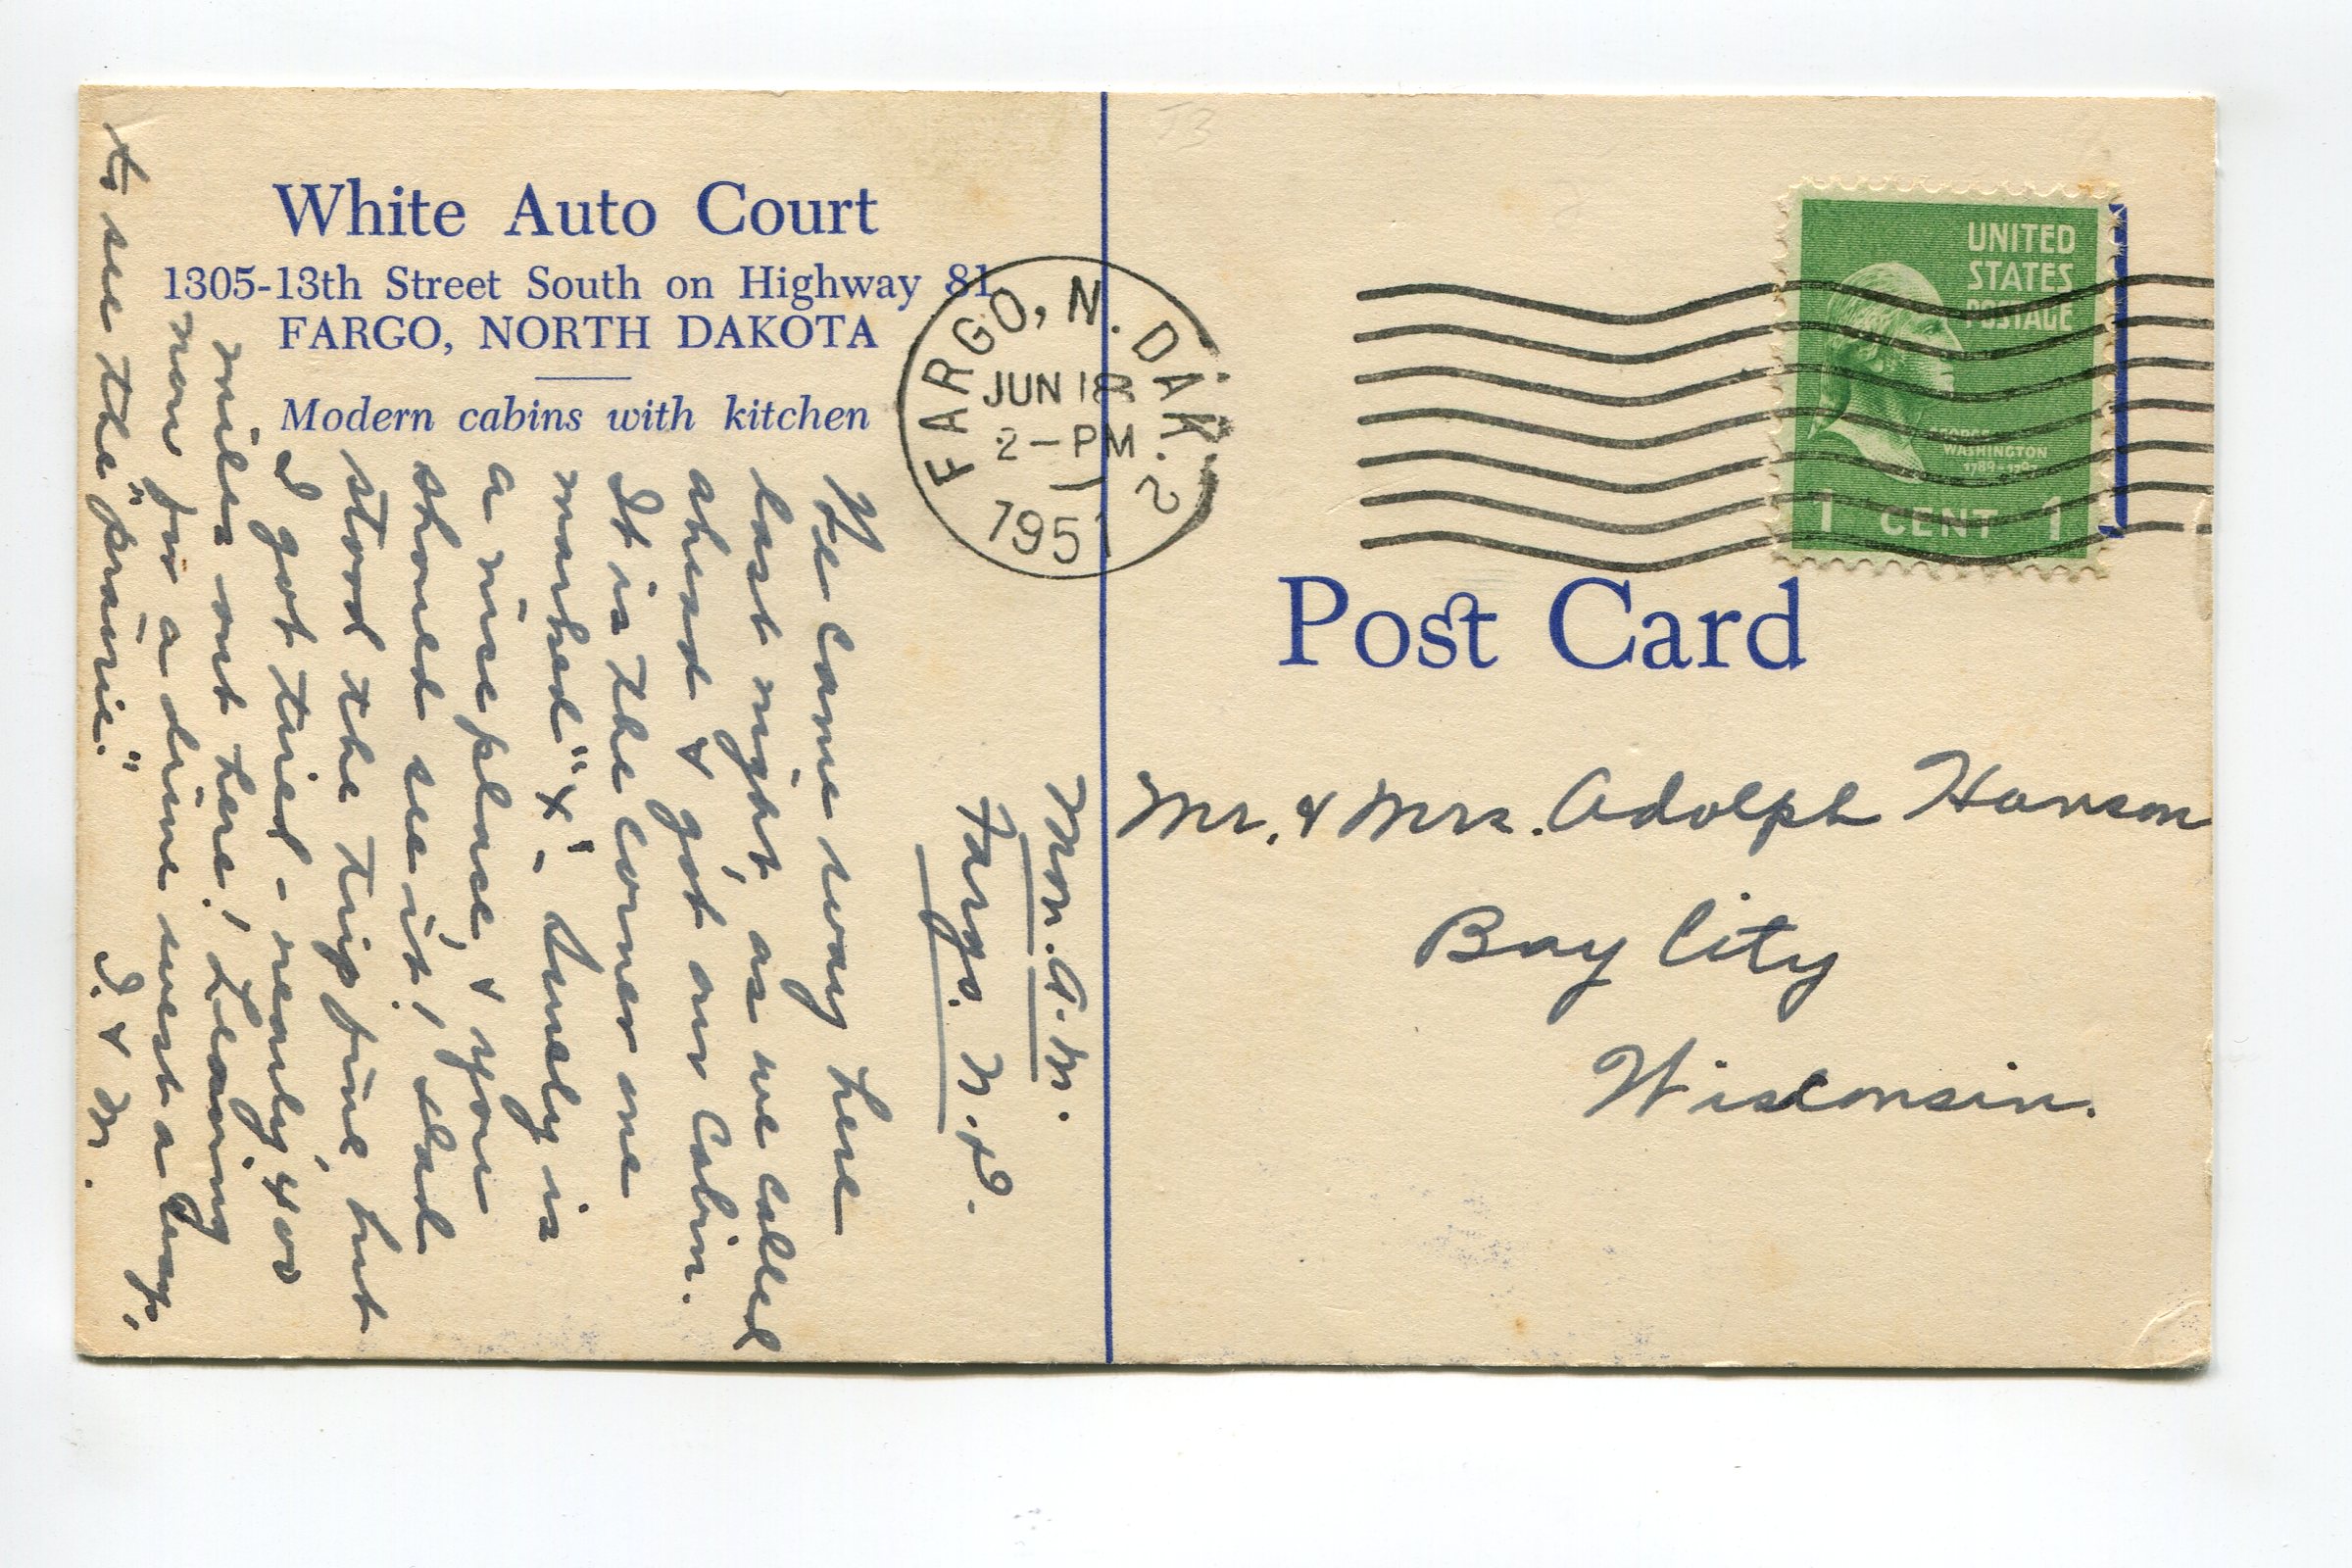 White Auto Court
1305-13th Street South on Highway 81
FARGO, NORTH DAKOTA
Modern cabins with kitchen
Mon. A.M.
Fargo. N.D.
We came way here
last night, as we called
ahead & got our cabin.
It is the corner one
marked "x" - Surely is
a nice place, & you
should see it! Dad
stood the trip fine, but
I got tired - nearly 400
miles out here! Leaving
now for a drive west a ways,
to see the "prairie."
I. & M.
FARGO, N. DAK. 2
JUN 18
2-PM
1951
UNITED
STATES
POSTAGE
GEORGE
WASHINGTON
1789-1797
1 CENT 1
Post Card
Mr. & Mrs. Adolph Hanson
Bay City
Wisconsin.